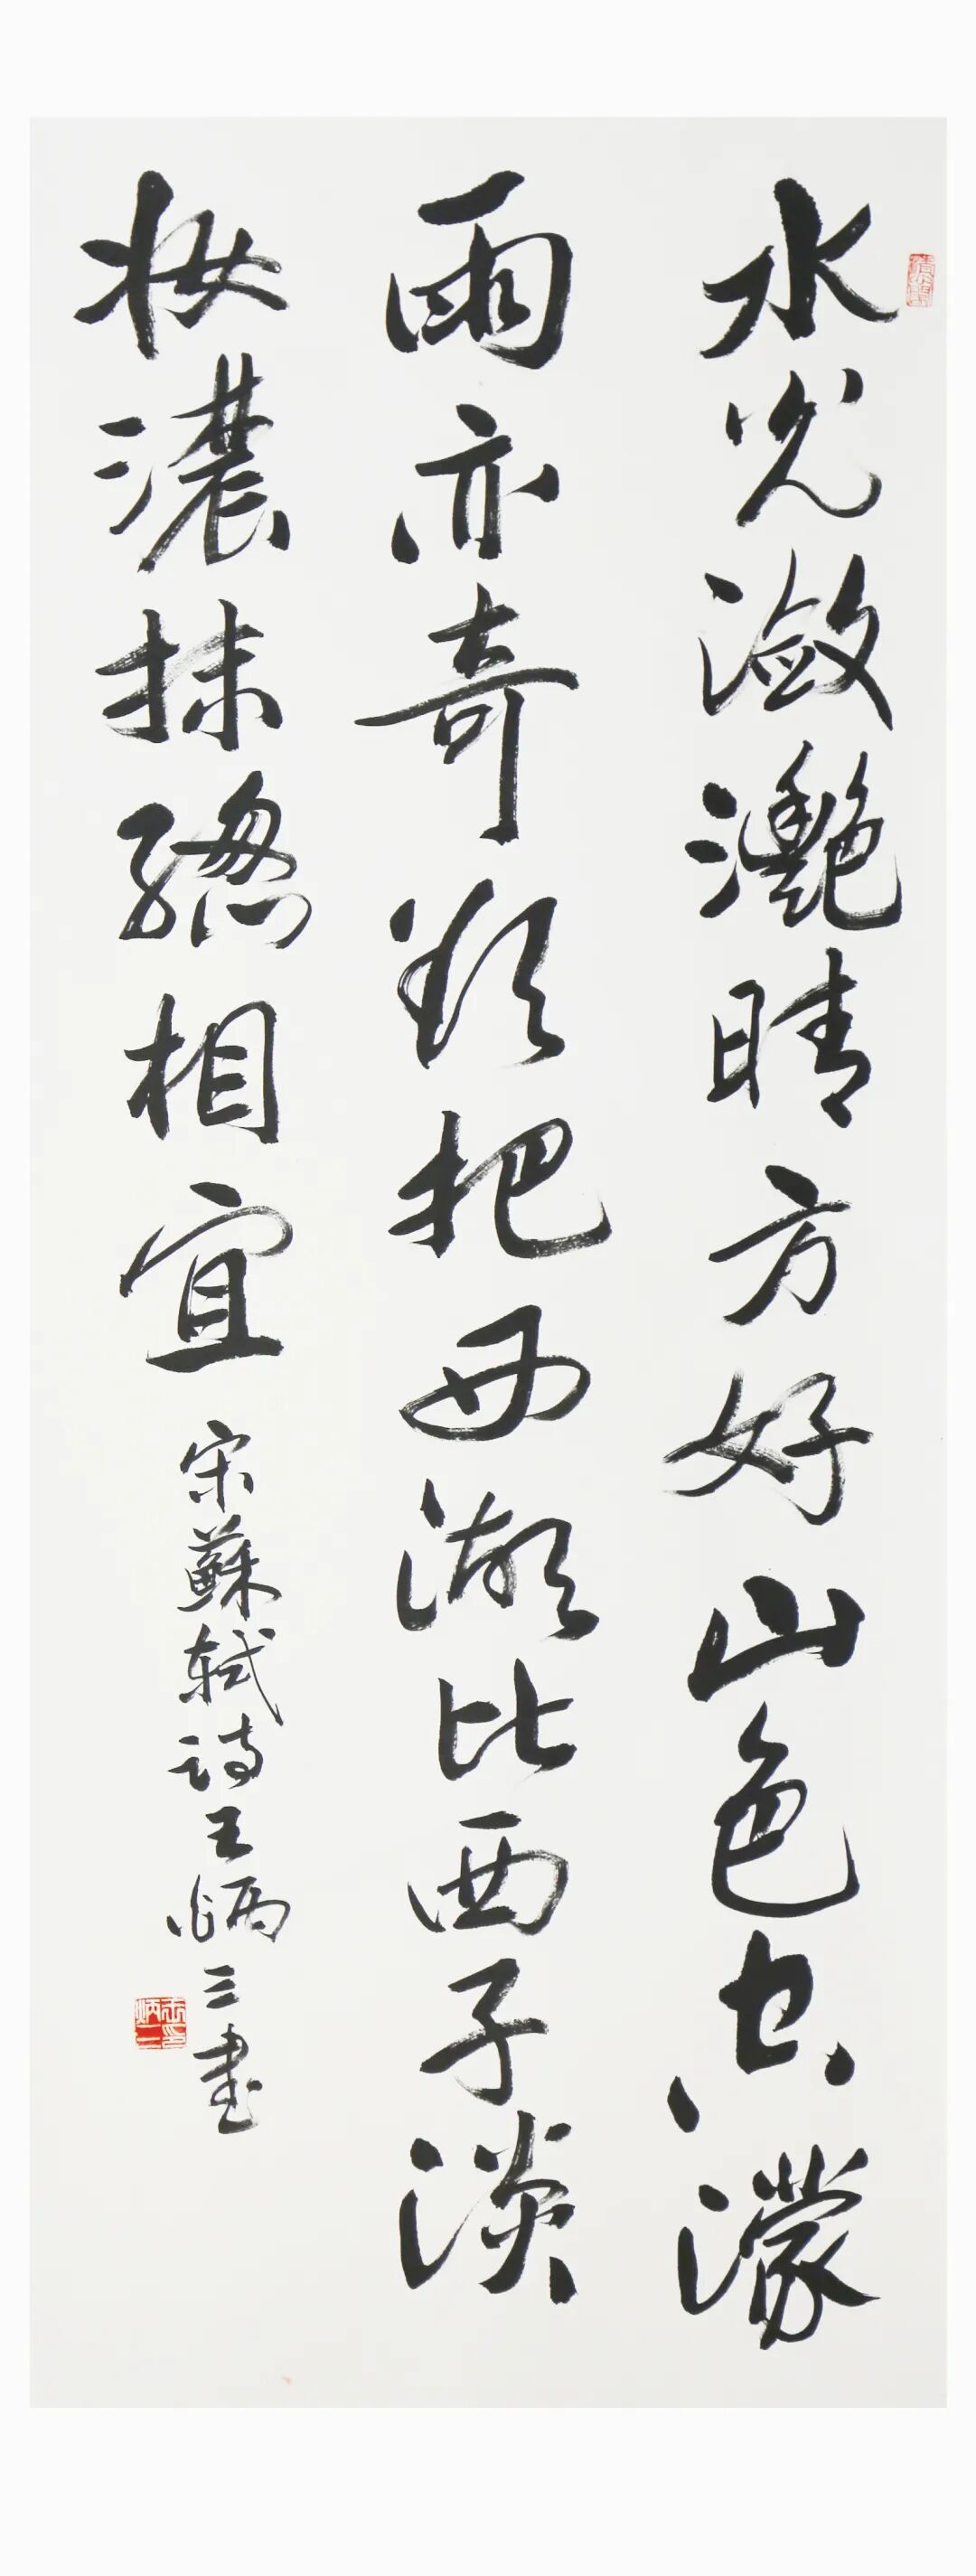 水光瀲灧晴方好山色空濛
雨亦奇欲把西湖比西子淡
妝濃抹總相宜
宋蘇軾詩王炳三書